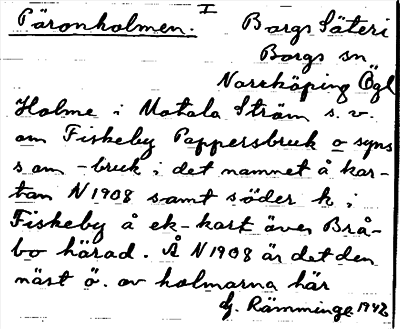 Päronholmen. I Borgs Säteri
Borgs sn
Norrköping Ögl
Holme i Motala Ström s.v.
om Fiskeby Pappersbruk o syns
s om - bruk i det namnet å kar-
tan N 1908 samt söder k i
Fiskeby å ek-kart över Brå-
bo härad. Å N 1908 är det den
näst ö. av holmarna här
Hj. Rämminge 1942